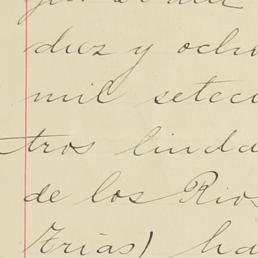 diez y ocho
mil setec
tros linda
de los Rios
Frias) ha